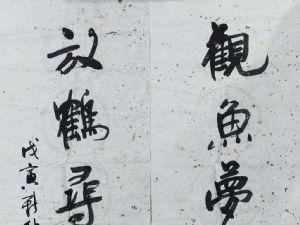 観魚夢
放鶴尋
戊寅